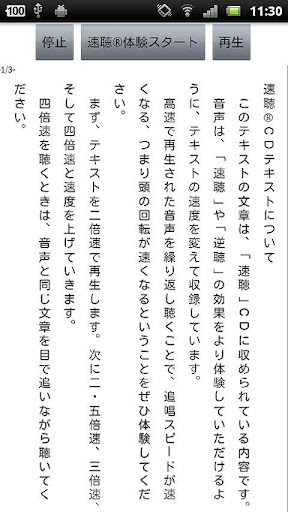 100
11:30
停止
速聴®体験スタート
再生
-1/3-
速聴®CDテキストについて
このテキストの文章は、「速聴」CDに収められている内容です。
音声は、「速聴」や「逆聴」の効果をより体験していただけるよ
うに、テキストの速度を変えて収録しています。
高速で再生された音声を繰り返し聴くことで、追唱スピードが速
くなる、つまり頭の回転が速くなるということをぜひ体験してくだ
さい。
まず、テキストを二倍速で再生します。次に二・五倍速、三倍速、
そして四倍速と速度を上げていきます。
四倍速を聴くときは、音声と同じ文章を目で追いながら聴いてく
ださい。